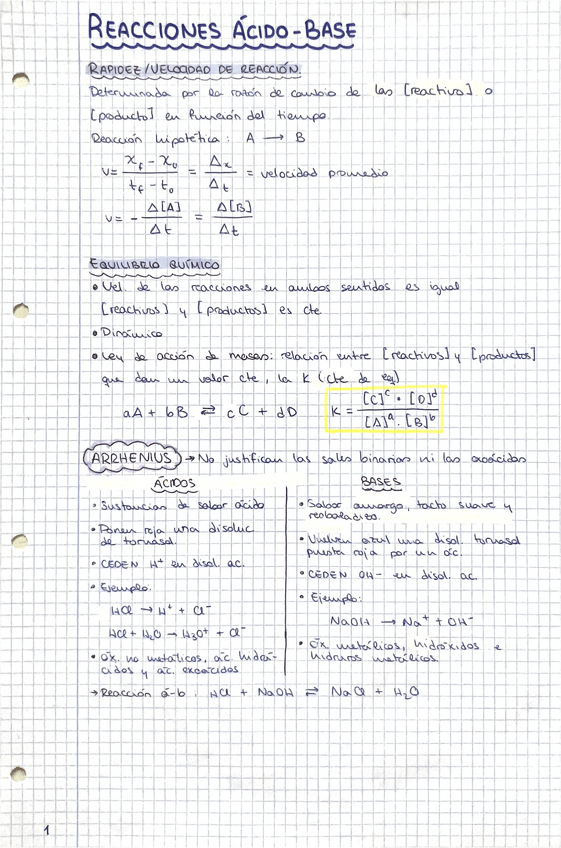 REACCIONES ÁCIDO-BASE
RAPIDEZ/VELOCIDAD DE REACCIÓN
Determinada por la razón de cambio de las [reactivo] o
[producto] en función del tiempo
Reacción hipotética: A → B
v = (x_f - x_0)/(t_f - t_0) = Δx/Δt = velocidad promedio
v = - Δ[A]/Δt = Δ[B]/Δt
EQUILIBRIO QUÍMICO
• Vel. de las reacciones en ambos sentidos es igual
[reactivos] y [productos] es cte.
• Dinámico
• Ley de acción de masas: relación entre [reactivos] y [productos]
que dan un valor cte, la K (cte de eq)
aA + bB ⇄ cC + dD K = [C]^c · [D]^d / [A]^a · [B]^b
ARRHENIUS → No justifican las sales binarias ni los oxoácidos
ÁCIDOS
• Sustancias de sabor ácido
• Ponen roja una disoluc
de tornasol.
• CEDEN H⁺ en disol. ac.
• Ejemplo:
HCl → H⁺ + Cl⁻
HCl + H₂O → H₃O⁺ + Cl⁻
• óx. no metálicos, ác. hidrá-
cidos y ác. oxoácidos
BASES
• Sabor amargo, tacto suave y
resbaladizo.
• Vuelven azul una disol. tornasol
puesta roja por un ác.
• CEDEN OH⁻ en disol. ac.
• Ejemplo:
NaOH → Na⁺ + OH⁻
• óx metálicos, hidróxidos e
hidruros metálicos.
→ Reacción á-b: HCl + NaOH ⇄ NaCl + H₂O
1